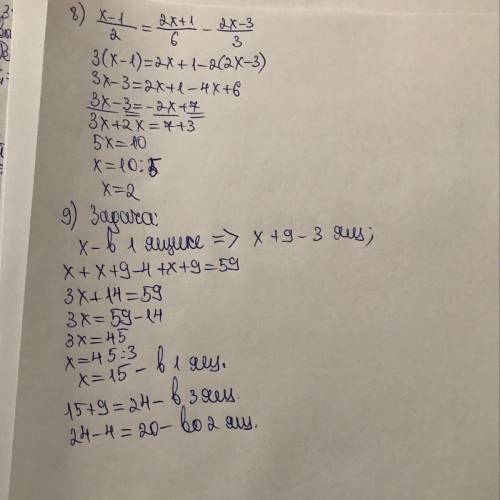 8) x-1/2 = 2x+1/6 - 2x-3/3
3(x-1)=2x+1-2(2x-3)
3x-3=2x+1-4x+6
3x-3=-2x+7
3x+2x=7+3
5x=10
x=10:5
x=2
9) Задача:
x-в 1 ящике => x+9-3 ящ;
x+x+9-4+x+9=59
3x+14=59
3x=59-14
3x=45
x=45:3
x=15- в 1 ящ.
15+9=24- в 3 ящ.
24-4=20- во 2 ящ.